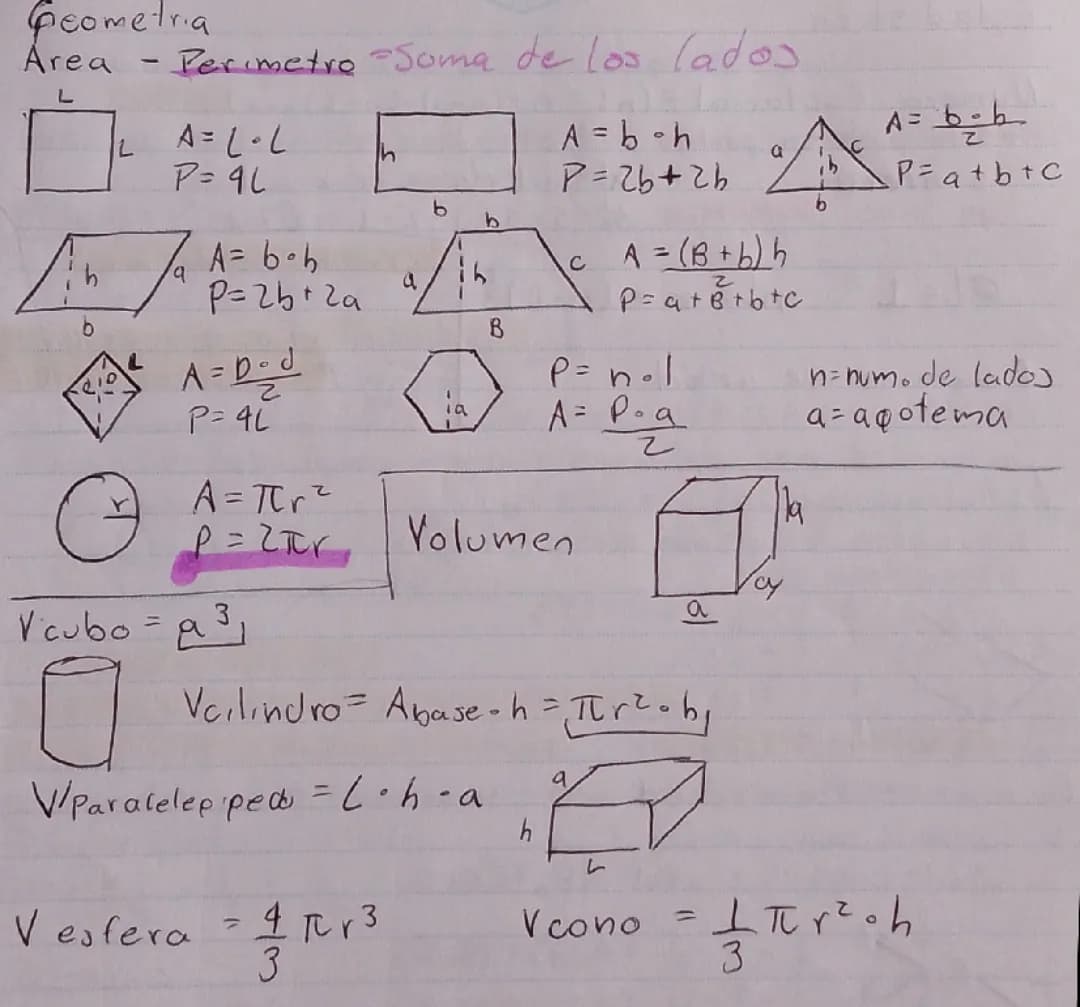 Geometria
Área - Perimetro = Suma de los lados
L
L
A = L·L
P = 4L
h
b
A = b·h
P = 2b + 2h
a
h
c
b
A = b·h/2
P = a + b + c
h
a
b
A = b·h
P = 2b + 2a
b
a
h
c
B
A = (B + b) h/2
P = a + B + b + c
L
d
D
A = D·d/2
P = 4L
a
P = n·l
A = P·a/2
n = num. de lados
a = apotema
r
A = πr²
P = 2πr
Volumen
a
a
a
V cubo = a³
V cilindro = Abase·h = πr²·h
V paralelepipedo = L·h·a
a
h
L
V esfera = 4/3 πr³
V cono = 1/3 πr²·h